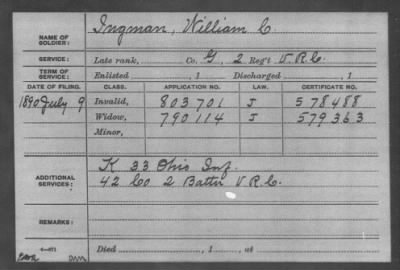 NAME OF SOLDIER: Ingman, William C.
SERVICE: Late rank, Co. G, 2 Reg't V.R.C.
TERM OF SERVICE: Enlisted , 1 Discharged , 1
DATE OF FILING. CLASS. APPLICATION NO. LAW. CERTIFICATE NO.
1890 July 9 Invalid, 803701 J 578488
Widow, 790114 J 579363
Minor,
K 33 Ohio Inf.
ADDITIONAL SERVICES: 42 Co 2 Batt'n V.R.C.
REMARKS:
Died , 1 , at